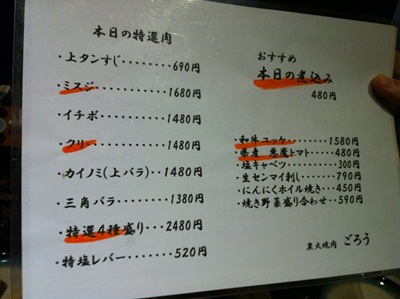 本日の特選肉
・上タンすじ・・・・・・・・690円
・ミスジ・・・・・・・・・・・1680円
・イチボ・・・・・・・・・・・1480円
・クリ・・・・・・・・・・・・1480円
・カイノミ(上バラ)・・・・1480円
・三角バラ・・・・・・・・・1380円
・特選4種盛り・・・2480円
・特塩レバー・・・・・・・520円
おすすめ
本日の煮込み
480円
・和牛ユッケ・・・・・・1580円
・県産 悪魔トマト・・・480円
・塩キャベツ・・・・・・・300円
・生センマイ刺し・・・・790円
・にんにくホイル焼き・・450円
・焼き野菜盛り合わせ・・590円
炭火焼肉 ごろう